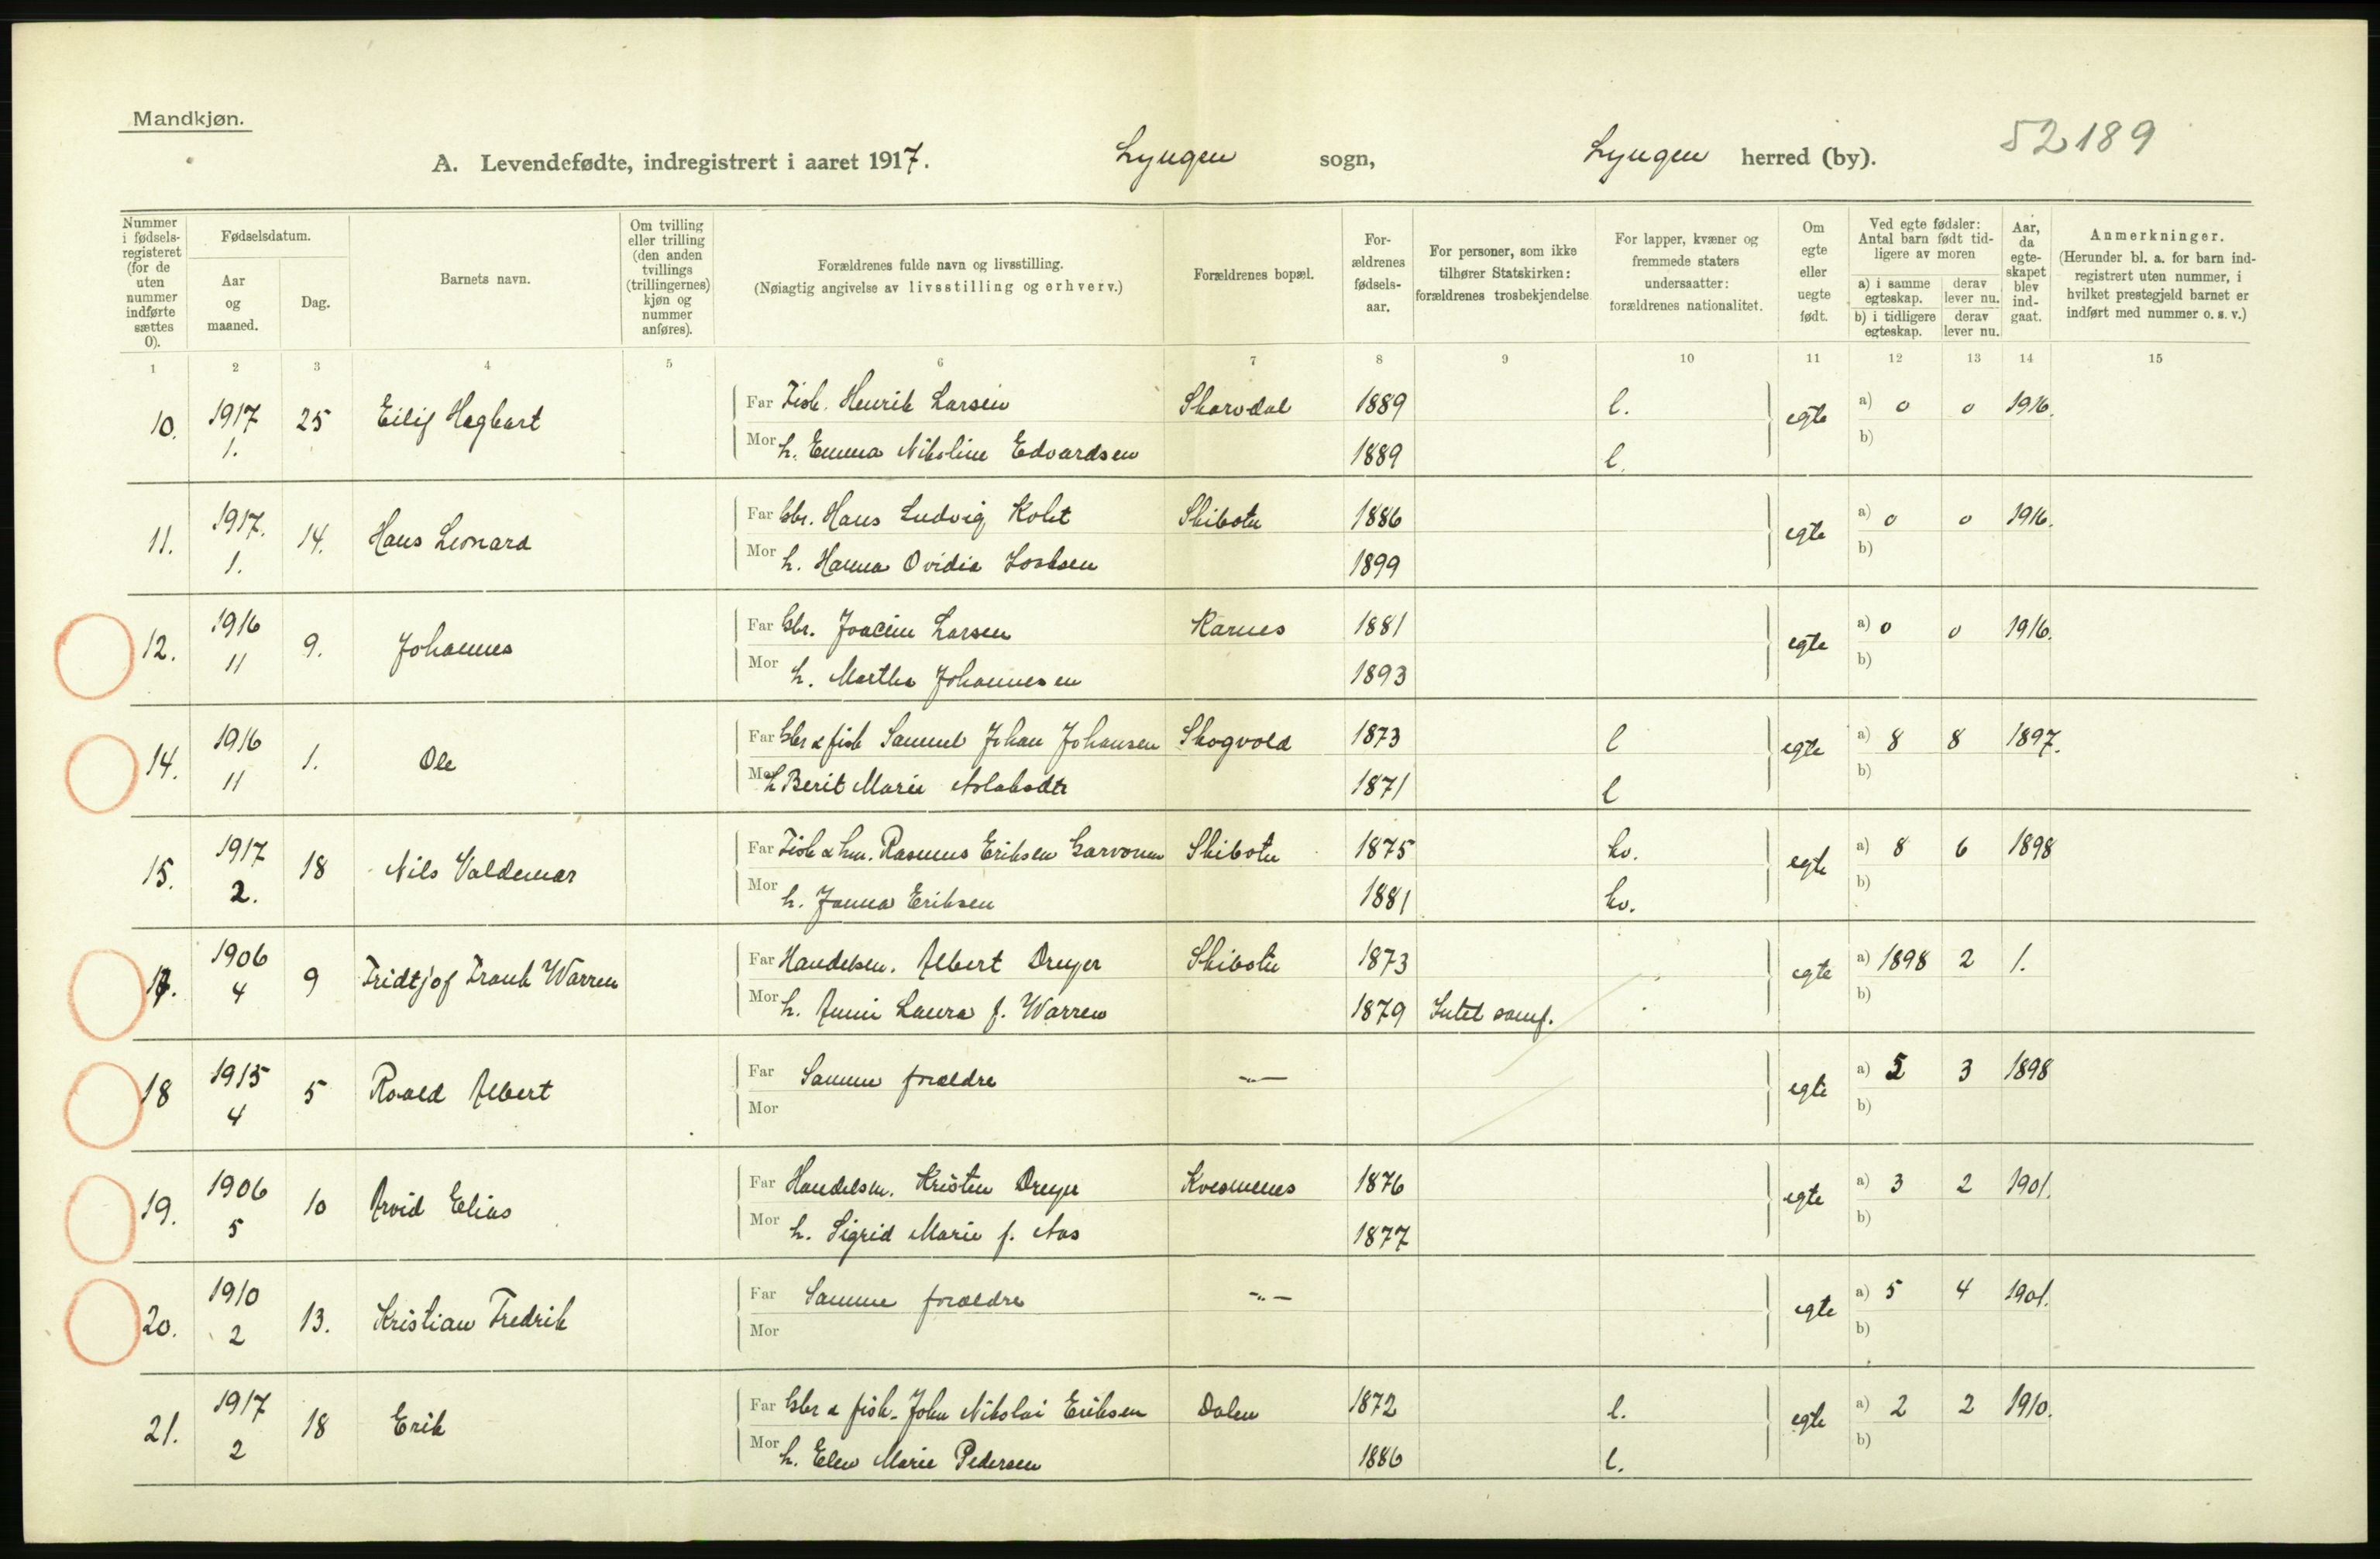 Mandkjøn.
A. Levendefødte, indregistrert i aaret 1917. Lyngen sogn, Lyngen herred (by). 52 189
Nummer i fødsels-registeret (for de uten nummer indførte sættes 0).
Fødselsdatum.
Aar og maaned.
Dag.
Barnets navn.
Om tvilling eller trilling (den anden tvillings (trillingernes) kjøn og nummer anføres).
Forældrenes fulde navn og livsstilling.
(Nøiagtig angivelse av livsstilling og erhverv.)
Forældrenes bopæl.
For-ældrenes fødsels-aar.
For personer, som ikke tilhører Statskirken: forældrenes trosbekjendelse
For lapper, kvæner og fremmede staters undersaatter: forældrenes nationalitet.
Om egte eller uegte født.
Ved egte fødsler: Antal barn født tid-ligere av moren
a) i samme egteskap. derav lever nu.
b) i tidligere egteskap. derav lever nu.
Aar, da egte-skapet blev ind-gaat.
Anmerkninger.
(Herunder bl. a. for barn ind-registrert uten nummer, i hvilket prestegjeld barnet er indført med nummer o. s. v.)
1 2 3 4 5 6 7 8 9 10 11 12 13 14 15
10. 1917 1. 25 Eilif Hagbart Far Fisk. Henrik Larsen Skarvdal 1889 l. egte a) 0 0 1916.
Mor h. Emma Nikoline Edvardsen 1889 l. b)
11. 1917. 1. 14. Hans Leonard Far Gbr. Hans Ludvig Koht Skibotn 1886 egte a) 0 0 1916.
Mor h. Hanna Ovidia 1899 b)
12. 1916 11 9. Johannes Far Gbr. Joacim Larsen Karnes 1881 egte a) 0 0 1916.
Mor h. Martha Johannesen 1893 b)
14. 1916 11 1. Ole Far Gbr & fisk Samuel Johan Johansen Skogvold 1873 l egte a) 8 8 1897.
Mor h Berit Marie Aslaksdtr 1871 l b)
15. 1917 2. 18 Nils Valdemar Far Fisk & hm. Rasmus Eriksen Skibotn 1875 kv. egte a) 8 6 1898
Mor h. Janna Eriksen 1881 kv. b)
17. 1906 4 9 Fridtjof Frank Warren Far Handelsm. Albert Dreyer Skibotn 1873 egte a) 1898 2 1.
Mor h. Annie Laura f. Warren 1879 Intet samf. b)
18 1915 4 5 Roald Albert Far Samme forældre —"— egte a) 5 3 1898
Mor b)
19. 1906 5 10 Arvid Elias Far Handelsm. Kristen Dreyer Kvesmenes 1876 egte a) 3 2 1901.
Mor h. Sigrid Marie f. Aas 1877 b)
20. 1910 2 13. Kristian Fredrik Far Samme forældre —"— egte a) 5 4 1901.
Mor b)
21. 1917 2 18 Erik Far Gbr & fisk. John Nikolai Eriksen Dalen 1872 l. egte a) 2 2 1910.
Mor h. Elen Marie Pedersen 1886 l. b)